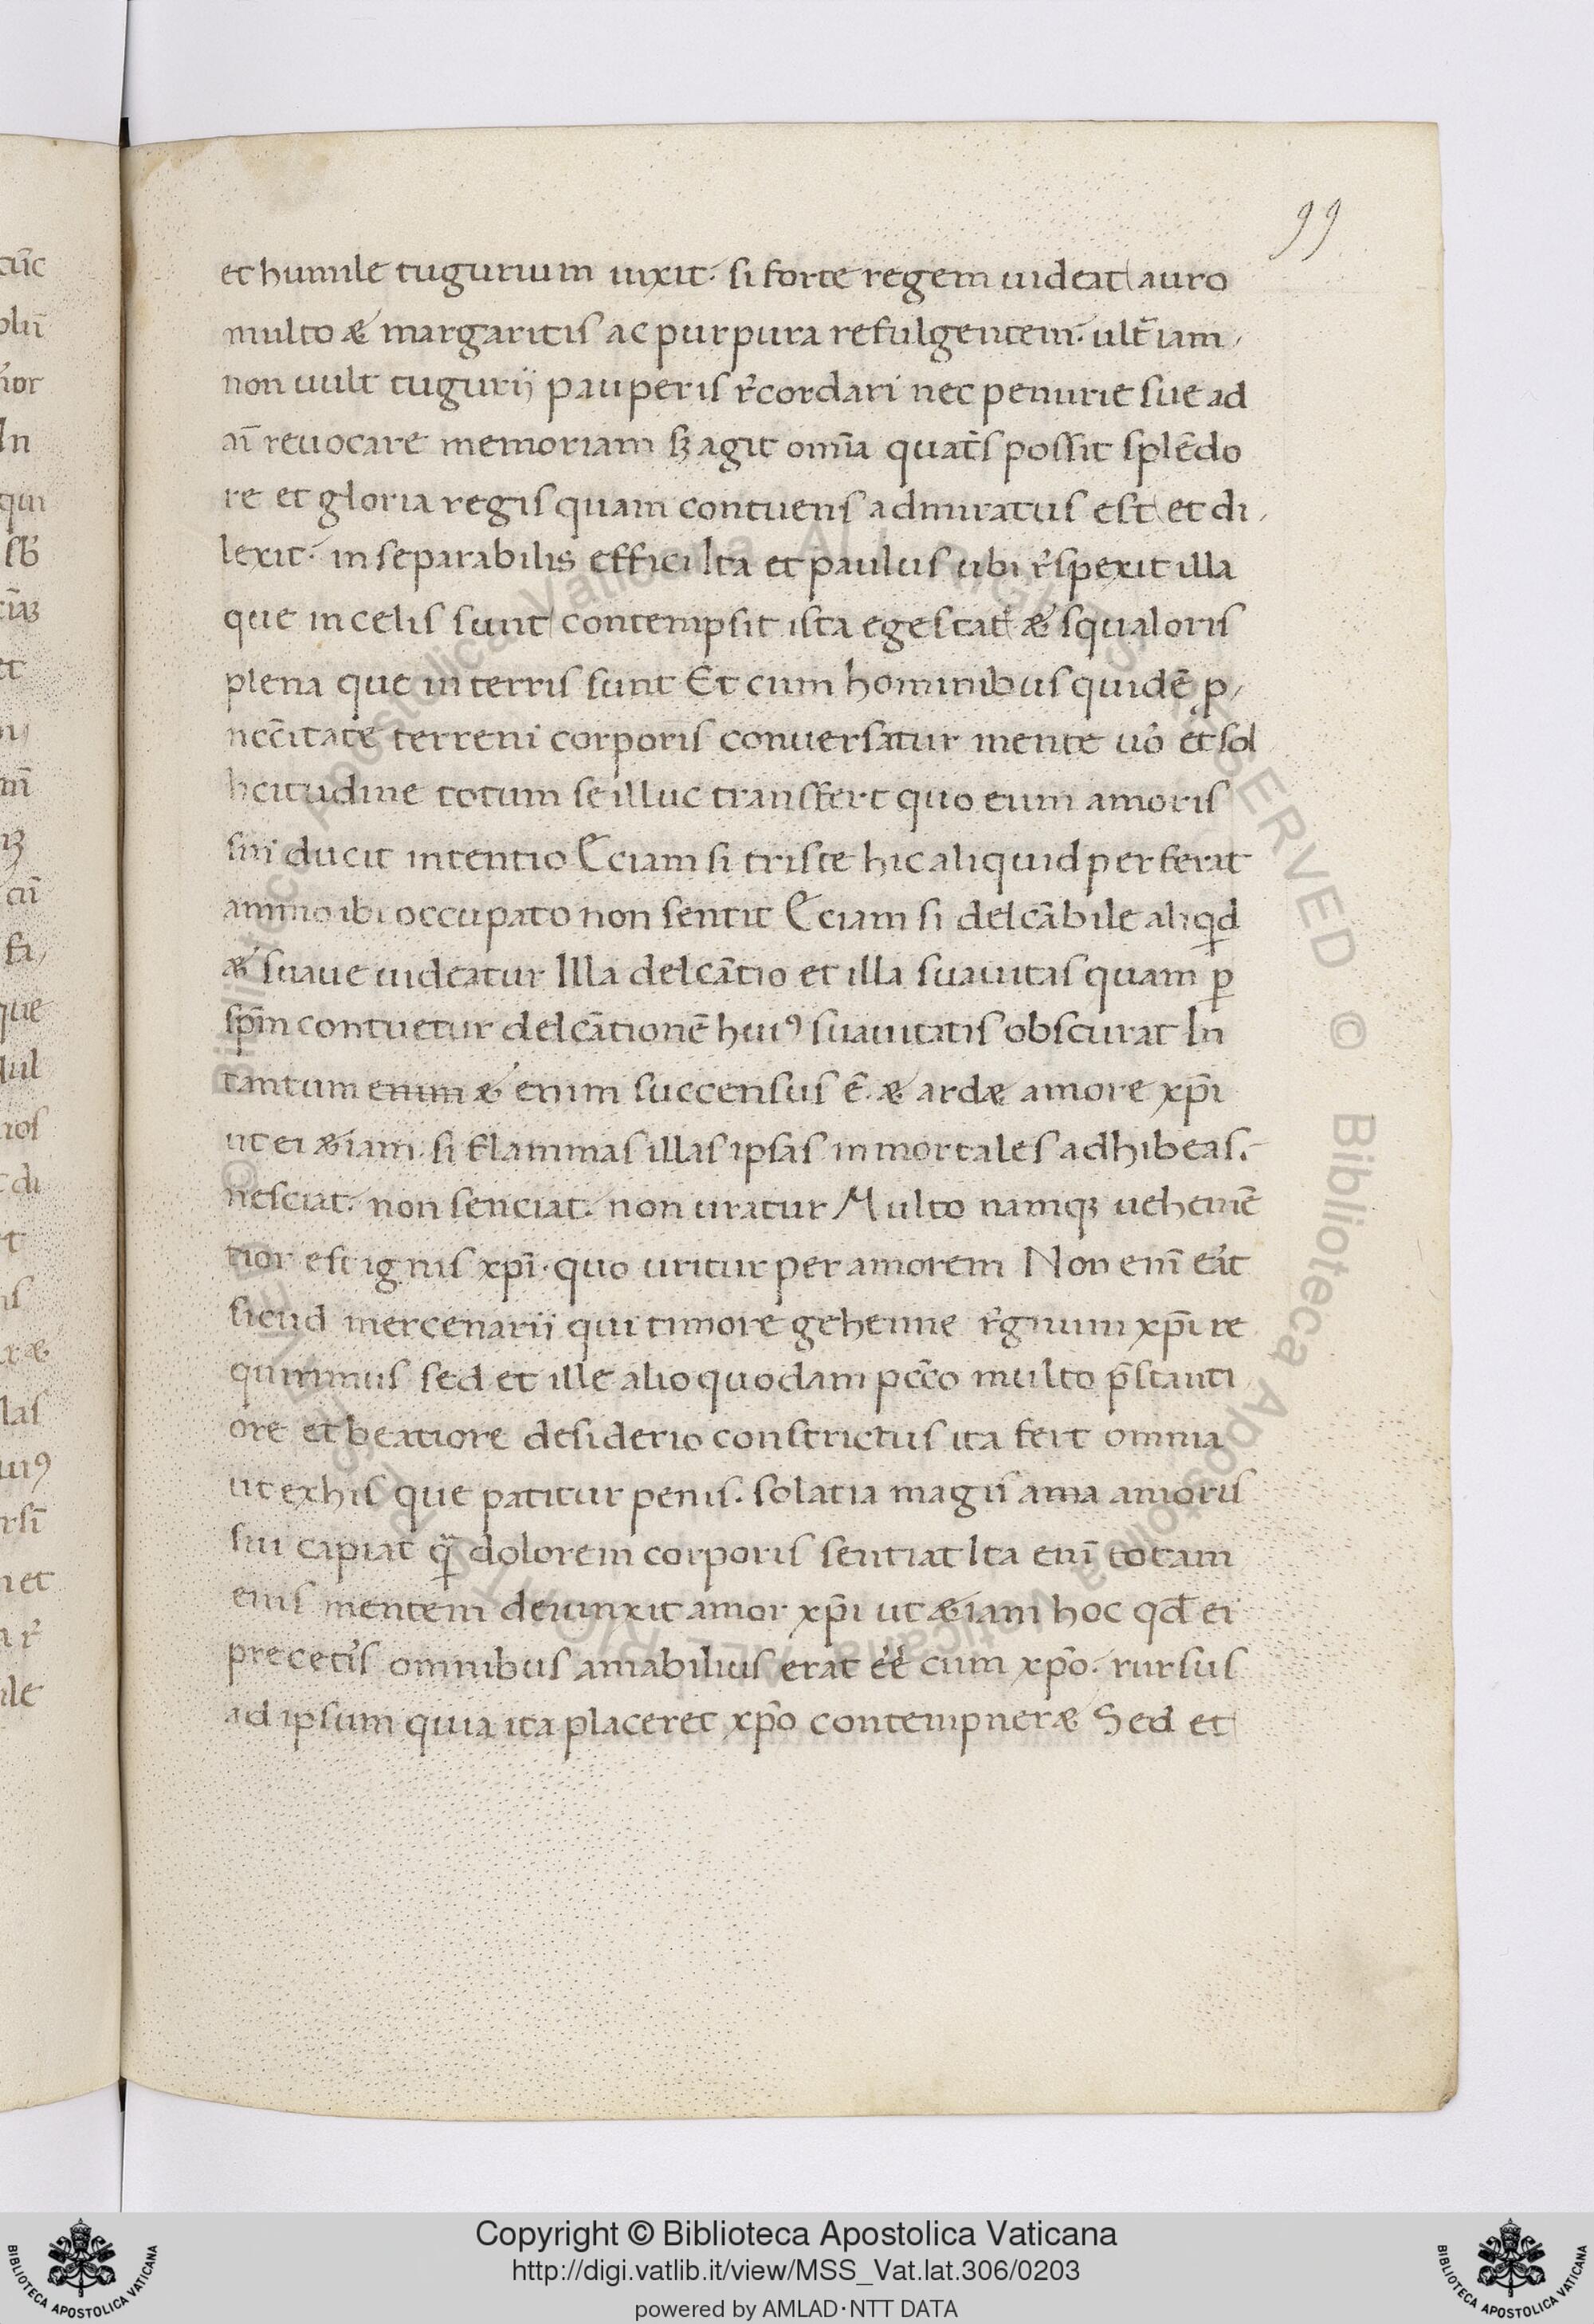 99
et humile tugurium uixit. si forte regem uideat auro
multo & margaritis ac purpura refulgentem. ult̄ iam
non uult tugurij pauperis r̉cordari nec penurie sue ad
an̄ reuocare memoriam sꝫ agit om̄a quat̉s possit splēdo
re et gloria regis quam contuens admiratus est et di
lexit. inseparabilis effici Ita et paulus ubi r̉spexit illa
que in celis sunt contempsit ista egestat̉ & squaloris
plena que in terris sunt Et cum hominibus quidē ꝑ
nēcitate terreni corporis conuersatur mente uỏ et sol
licitudine totum se illuc transfert quo eum amoris
sui ducit intentio Eciam si triste hic aliquid perferat
animo ibi occupato non sentit Eciam si delcābile aliqd
& suaue uideatur Illa delcātio et illa suauitas quam ꝑ
sp̄m contuetur delcātionē huiꝰ suauitatis obscurat In
tantum enim & enim succensus ē. & ard& amore xp̄i
ut ei &iam. si flammas illas ipsas inmortales adhibeas.
nesciat. non senciat. non uratur Multo namqꝫ uehemē
tior est ignis xp̄i. quo uritur per amorem Non enī erit
sicud mercenarii qui timore gehenne r̉gnum xp̄i re
quirimus sed et ille alio quodam pc̄c̄o multo p̄stanti
ore et beatiore desiderio constrictus ita fert omnia
ut ex his que patitur penis. solatia magis ama amoris
sui capiat ꝙ̄ dolorem corporis sentiat Ita enī totam
eius mentem deuinxit amor xp̄i ut &iam hoc qd̄ ei
pre cet̉is omnibus amabilius erat ēē cum xp̄o. rursus
ad ipsum quia ita placeret xp̄o contempner& Sed et
Copyright © Biblioteca Apostolica Vaticana
http://digi.vatlib.it/view/MSS_Vat.lat.306/0203
powered by AMLAD·NTT DATA